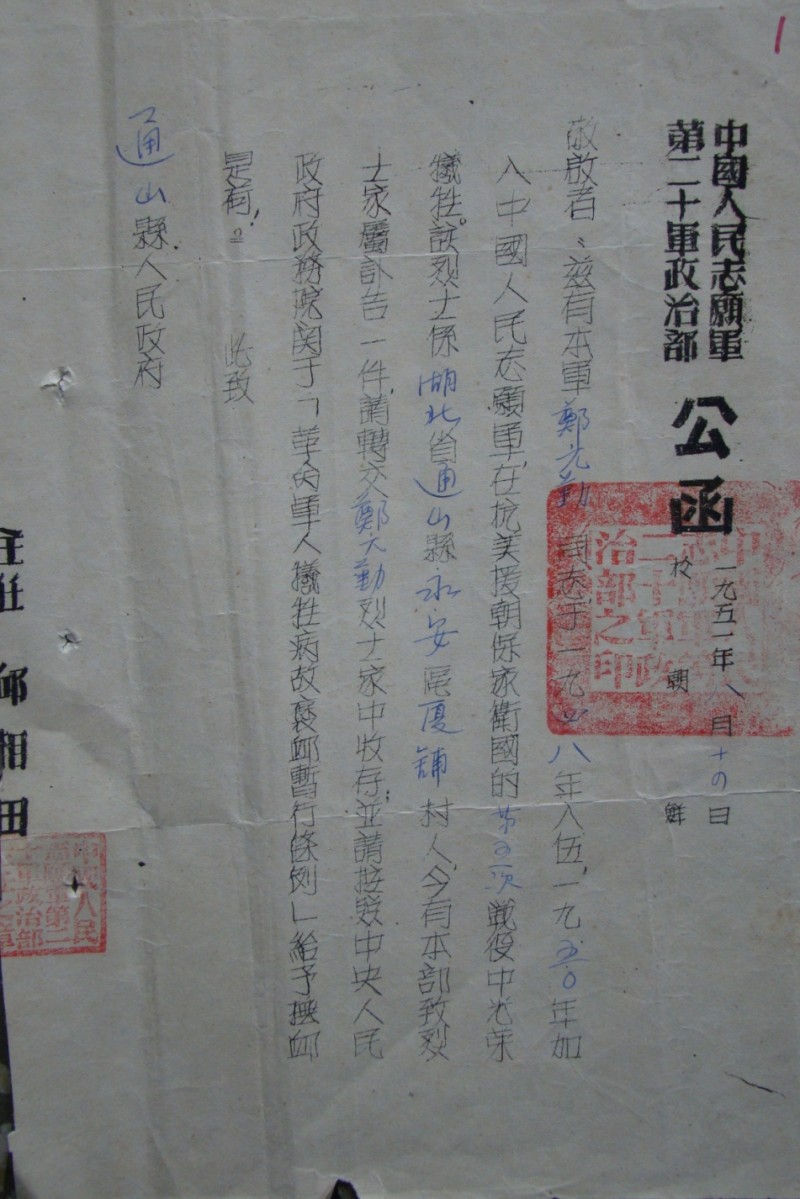 1
中國人民志願軍
第二十軍政治部
公函
一九五一年八月十四日
於朝鮮
敬啟者：茲有本軍鄭元勤同志于一九四八年入伍，一九五〇年加
入中國人民志願軍，在抗美援朝保家衛國的第五次戰役中光榮
犧牲。該烈士係湖北省通山縣永安區厦鋪村人，今有本部致烈
士家屬訃告一件，請轉交鄭元勤烈士家中收存，並請按照中央人民
政府政務院関于「革命軍人犧牲病故褒卹暫行條例」給予撫卹
是荷。
此致
通山縣人民政府
主任 邱相田
中國人民志願軍第二十軍政治部之印